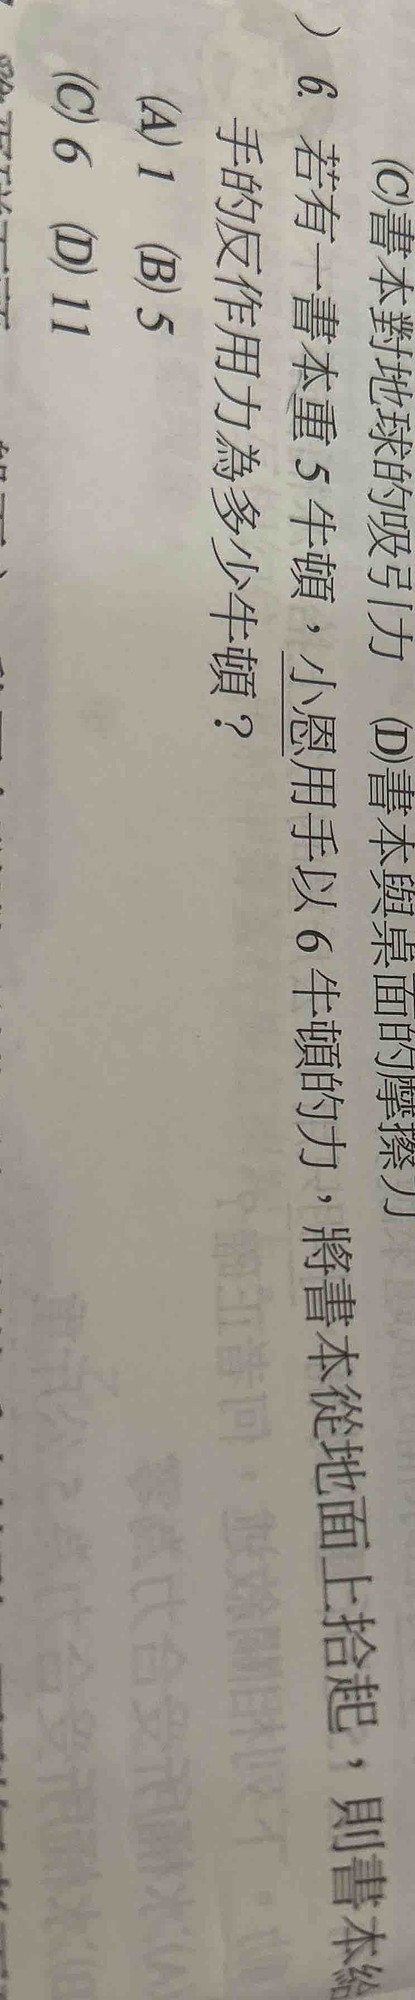 (C)書本對地球的吸引力 (D)書本與桌面的摩擦力
) 6. 若有一書本重 5 牛頓，小恩用手以 6 牛頓的力，將書本從地面上拾起，則書本給
手的反作用力為多少牛頓？
(A) 1 (B) 5
(C) 6 (D) 11